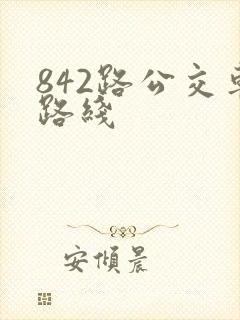 842路公交车
路线
安傾晨